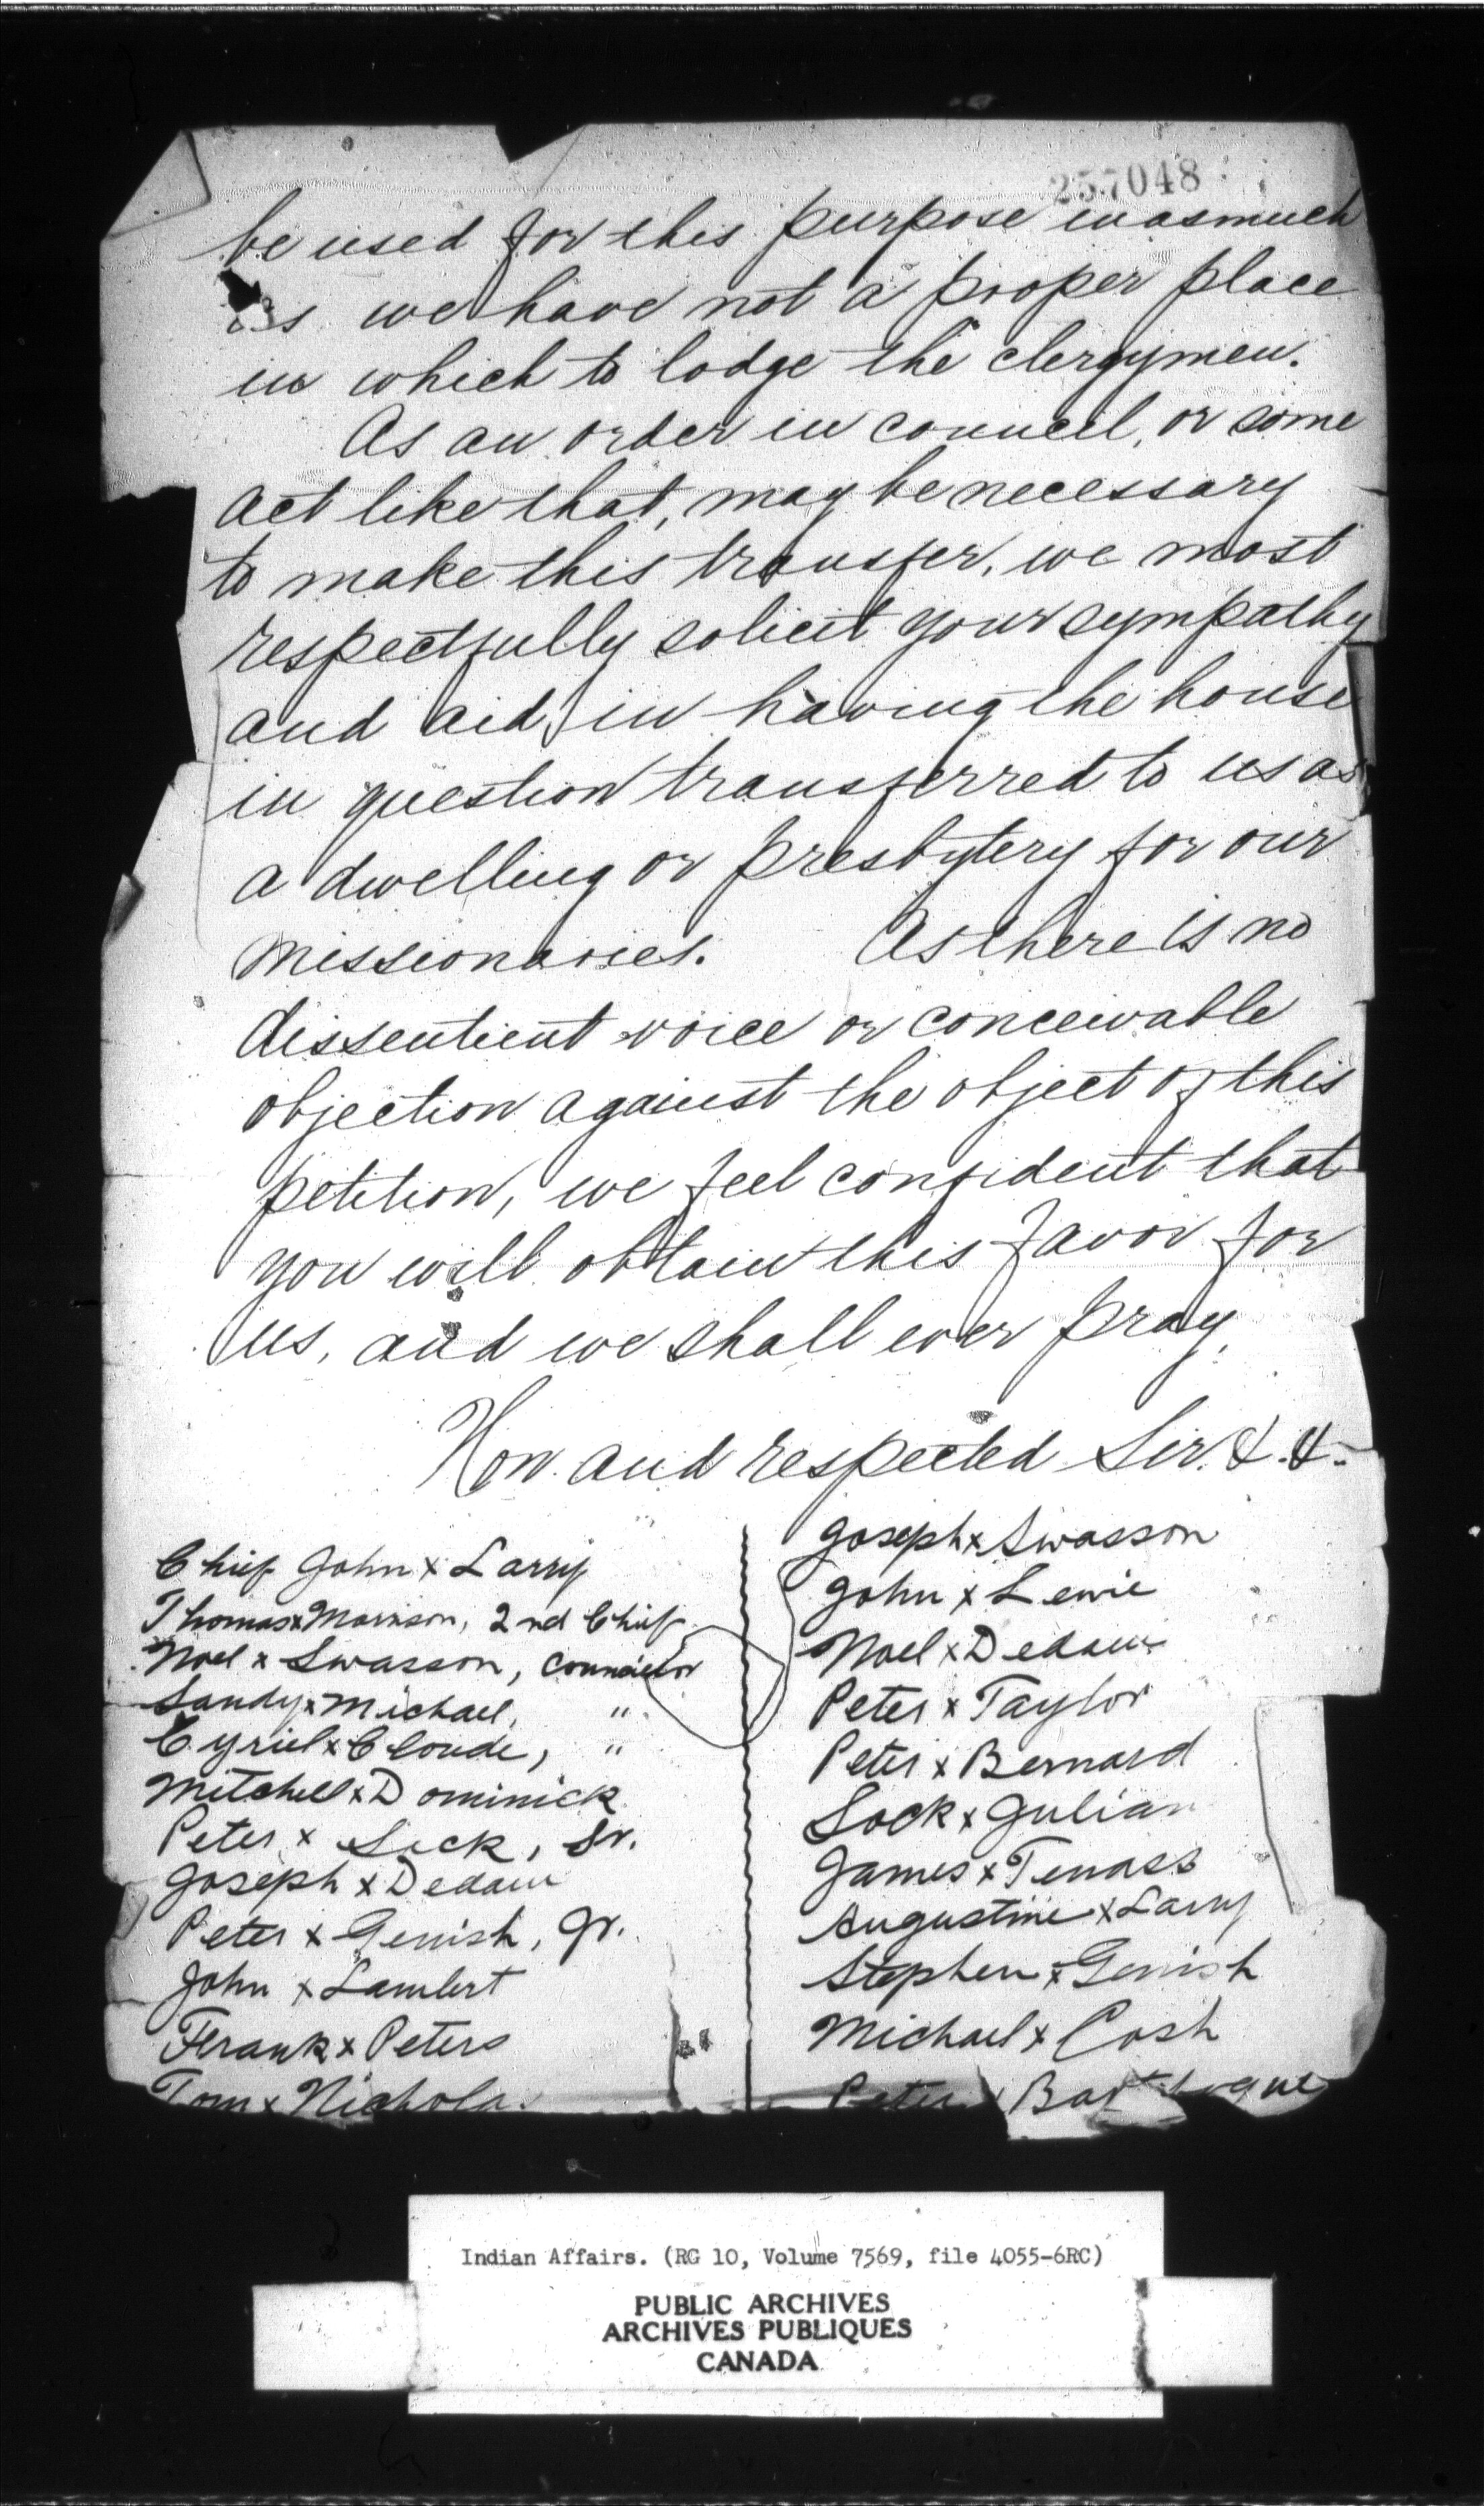 257048
be used for this purpose inasmuch
as we have not a proper place
in which to lodge the clergymen.
As an order in council, or some
act like that, may be necessary
to make this transfer, we most
respectfully solicit your sympathy
and aid, in having the house
in question transferred to us as
a dwelling or presbytery for our
missionaries. As there is no
dissentient voice or conceivable
objection against the object of this
petition, we feel confident that
you will obtain this favor for
us, and we shall ever pray,
Hon. and respected Sir. &. &.
Chief John x Larry
Thomas x Morrison, 2nd Chief
Noel x Swasson, Councilor
Sandy x Michael, "
Cyriel x Cloude, "
Mitchell x Dominick
Peter x Sock, Sr.
Joseph x Dedam
Peter x Genish, Jr.
John x Lambert
Frank x Peters
Tom x Nichola.
Joseph x Swasson
John x Lewie
Noel x Dedam
Peter x Taylor
Peter x Bernard
Sock x Julian
James x Tenass
Augustine x Larry
Stephen x Genish
Michael x Cosh
Peter x
Indian Affairs. (RG 10, Volume 7569, file 4055-6RC)
PUBLIC ARCHIVES
ARCHIVES PUBLIQUES
CANADA